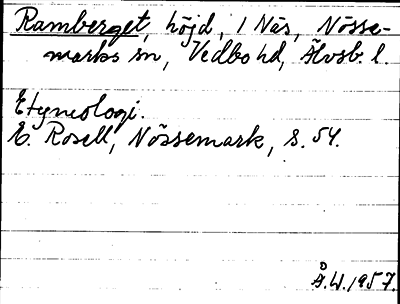 Ramberget, höjd, 1 Näs, Nösse-
marks sn, Vedbo hd, Älvsb. l.
Etymologi.
E. Rosell, Nössemark, s. 54.
Å.W. 1957.